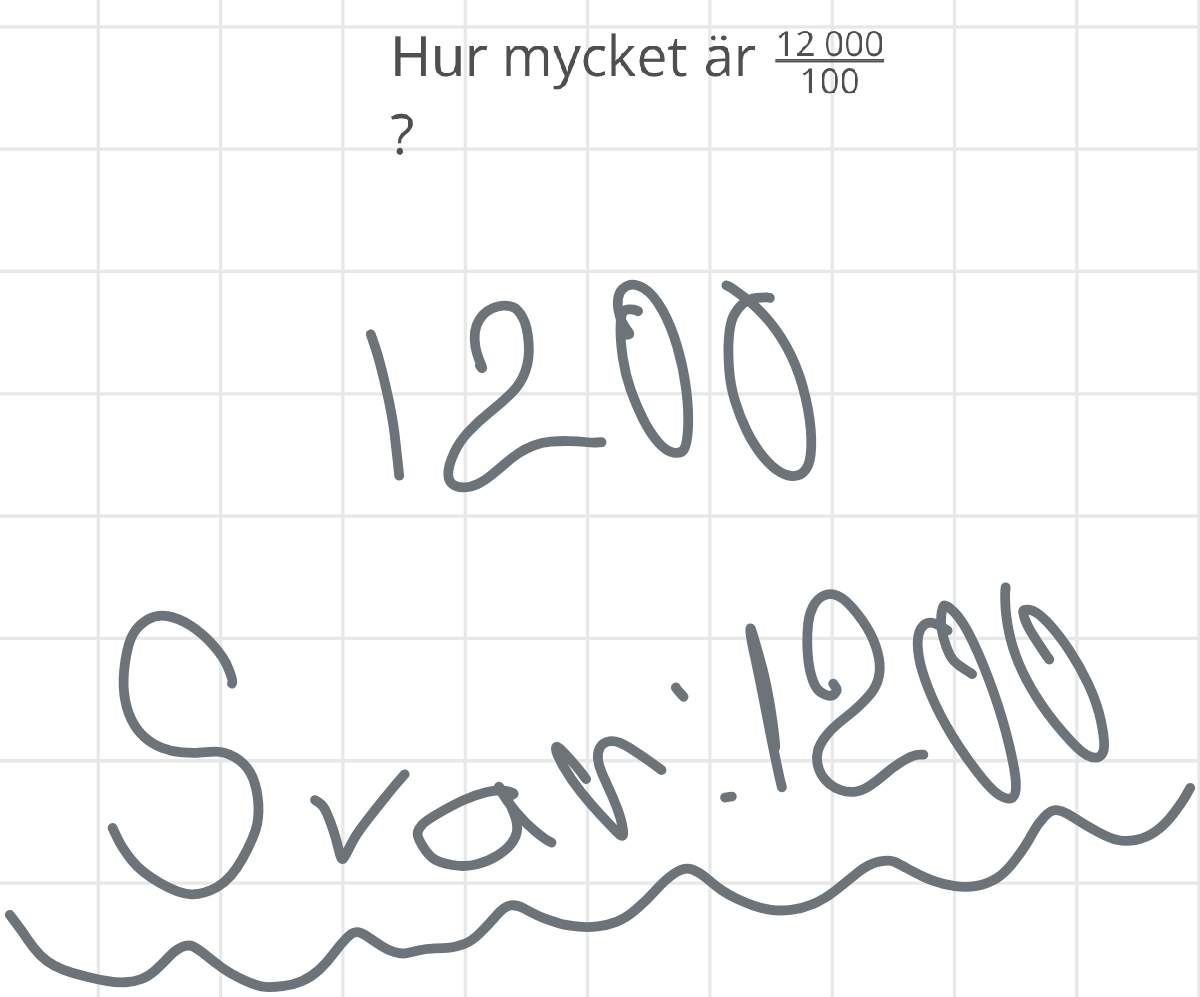 Hur mycket är \frac{12 000}{100}
?
1200
Svar: 1200